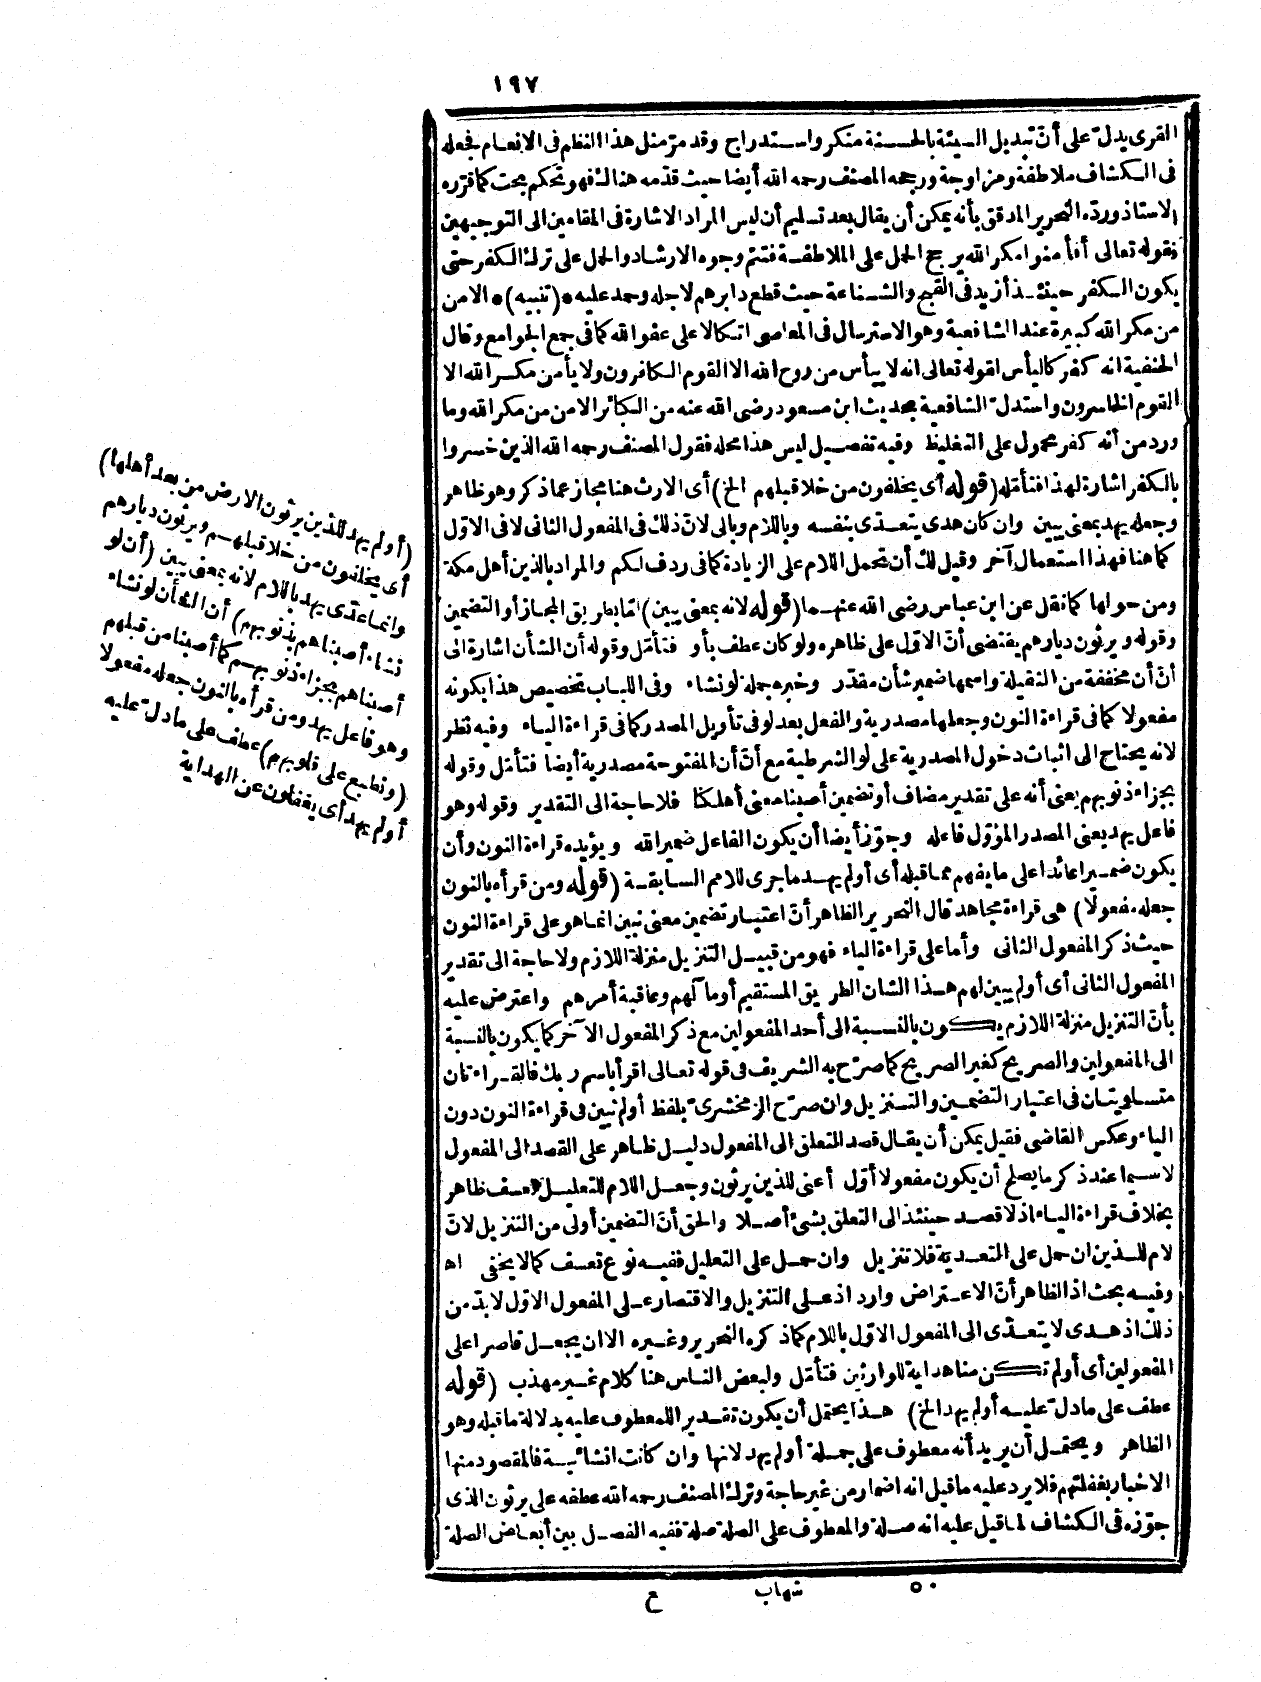 ١٩٧
القرى يدل على أن تبديل السيئة بالحسنة منكر واستدراج وقد مر مثل هذا النظم فى الانعام فجعله
فى الكشاف ملاطفة ومزاوجة ورجحه المصنف رحمه الله أيضا حيث قدمه هنالك فهو تحكم بحت كما قرره
الاستاذ ورده النحرير المدقق بأنه يمكن أن يقال بعد تسليم أن ليس المراد الاشارة فى المقامين الى التوجيهين
فقوله تعالى أفأمنوا مكر الله يرجح الحمل على الملاطفة فتتم وجوه الارشاد والحمل على ترك الكفر حتى
يكون الكفر حينئذ أزيد فى القبح والشناعة حيث قطع دابرهم لاجله وحمد عليه * (تنبيه) * الامن
من مكر الله كبيرة عند الشافعية وهو الاسترسال فى المعاصى اتكالا على عفو الله كما فى جمع الجوامع وقال
الحنفية انه كفر كاليأس لقوله تعالى انه لا ييأس من روح الله الا القوم الكافرون ولا يأمن مكر الله الا
القوم الخاسرون واستدل الشافعية بحديث ابن مسعود رضى الله عنه من الكبائر الامن من مكر الله وما
ورد من أنه كفر محمول على التغليظ وفيه تفصيل ليس هذا محله فقول المصنف رحمه الله الذين خسروا
بالكفر اشارة لهذا فتأمله (قوله أى يخلفون من خلا قبلهم الخ) أى الارث هنا مجاز عما ذكر وهو ظاهر
وجعله يهد بمعنى يبين وان كان هدى يتعدى بنفسه وباللام وبالى لان ذلك فى المفعول الثانى لا فى الاول
كما هنا فهذا استعمال آخر وقيل لك أن تحمل اللام على الزيادة كما فى ردف لكم والمراد بالذين أهل مكة
ومن حولها كما نقل عن ابن عباس رضى الله عنهما (قوله لانه بمعنى يبين) اما بطريق المجاز أو التضمين
وقوله ويرثون ديارهم يقتضى أن الاول على ظاهره ولو كان عطف بأو فتأمل وقوله أن الشأن اشارة الى
أن أن مخففة من الثقيلة واسمها ضمير شأن مقدر وخبره جملة لو نشاء وفى اللباب تخصيص هذا بكونه
مفعولا كما فى قراءة النون وجعلها مصدرية والفعل بعد لو فى تأويل المصدر كما فى قراءة الياء وفيه نظر
لانه يحتاج الى اثبات دخول المصدرية على لو الشرطية مع أن أن المفتوحة مصدرية أيضا فتأمل وقوله
بجزاء ذنوبهم يعنى أنه على تقدير مضاف أو تضمين أصبنا معنى أهلكنا فلا حاجة الى التقدير وقوله وهو
فاعل يهد يعنى المصدر المؤول فاعله وجوز أيضا أن يكون الفاعل ضمير الله ويؤيده قراءة النون وأن
يكون ضميرا عائدا على ما يفهم مما قبله أى أولم يهد ما جرى للامم السابقة (قوله ومن قرأه بالنون
جعله مفعولا) هى قراءة مجاهد قال النحرير الظاهر أن اعتبار تضمين معنى نبين انما هو على قراءة النون
حيث ذكر المفعول الثانى وأما على قراءة الياء فهو من قبيل التنزيل منزلة اللازم ولا حاجة الى تقدير
المفعول الثانى أى أولم يبين لهم هذا الشان الطريق المستقيم أو مآلهم وعاقبة أمرهم واعترض عليه
بأن التنزيل منزلة اللازم يكون بالنسبة الى أحد المفعولين مع ذكر المفعول الآخر كما يكون بالنسبة
الى المفعولين والصريح كغير الصريح كما صرح به الشريف فى قوله تعالى اقرأ باسم ربك فالقراءتان
متساويتان فى اعتبار التضمين والتنزيل وان صرح الزمخشرى بلفظ أولم نبين فى قراءة النون دون
الياء وعكس القاضى فقيل يمكن أن يقال قصد التعلق الى المفعول دليل ظاهر على القصد الى المفعول
لاسيما عند ذكر ما يصلح أن يكون مفعولا أول أعنى للذين يرثون وجعل اللام للتعليل تعسف ظاهر
بخلاف قراءة الياء اذ لا قصد حينئذ الى التعلق بشئ أصلا والحق أن التضمين أولى من التنزيل لان
لام للذين ان حمل على التعدية فلا تنزيل وان حمل على التعليل ففيه نوع تعسف كما لا يخفى اه
وفيه بحث اذ الظاهر أن الاعتراض وارد اذ على التنزيل والاقتصار على المفعول الاول لا بد من
ذلك اذ هدى لا يتعدى الى المفعول الاول باللام كما ذكره النحرير وغيره الا ان يجعل قاصرا على
المفعولين أى أولم تكن منا هداية للوارثين فتأمل ولبعض الناس هنا كلام غير مهذب (قوله
عطف على ما دل عليه أولم يهد الخ) هذا يحتمل أن يكون تقدير للمعطوف عليه بدلالة ما قبله وهو
الظاهر ويحتمل أن يريد أنه معطوف على جملة أولم يهد لانها وان كانت انشائية فالمقصود منها
الاخبار بغفلتهم فلا يرد عليه ما قيل انه اضمار من غير حاجة وترك المصنف رحمه الله عطفه على يرثون الذى
جوزه فى الكشاف لما قيل عليه انه صلة والمعطوف على الصلة صلة ففيه الفصل بين أبعاض الصلة
(أولم يهد للذين يرثون الارض من بعد أهلها)
أى يخلفون من خلا قبلهم ويرثون ديارهم
وانما عدى يهد باللام لانه بمعنى يبين (أن لو
نشاء أصبناهم بذنوبهم) أن الشأن لو نشاء
أصبناهم بجزاء ذنوبهم كما أصبنا من قبلهم
وهو فاعل يهد ومن قرأه بالنون جعله مفعولا
(ونطبع على قلوبهم) عطف على ما دل عليه
أولم يهد أى يغفلون عن الهداية
٥٠ شهاب ع